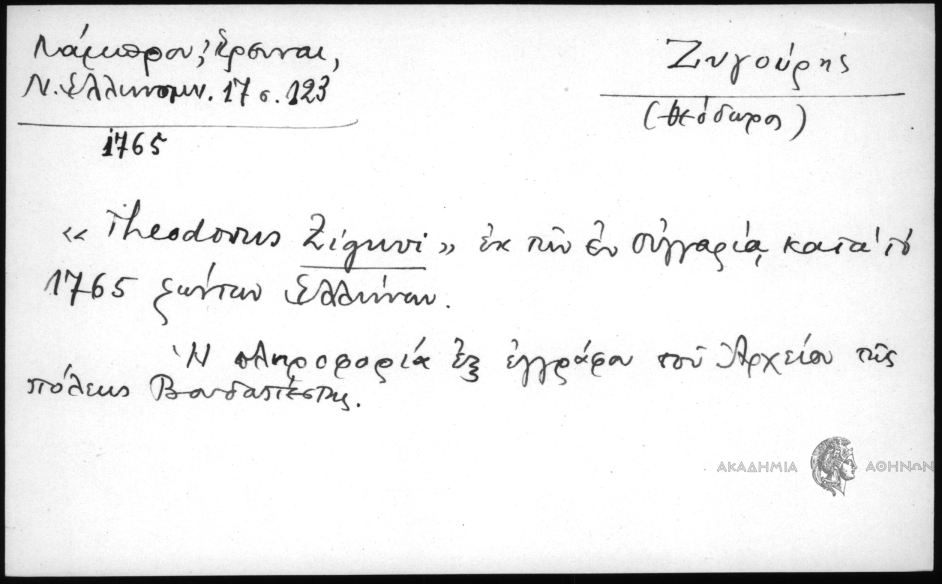 Λάμπρου, Ἔρευναι,
Ν. Ἑλληνομν. 17 σ. 123
1765
Ζυγούρης
(Θεόδωρος)
« Theodorus Ziguri » ἐκ τῶν ἐν Οὑγγαρίᾳ κατὰ τὸ
1765 ζώντων Ἑλλήνων.
Ἡ πληροφορία ἐξ ἐγγράφου τοῦ Ἀρχείου τῆς
πόλεως Βουδαπέστης.
ΑΚΑΔΗΜΙΑ ΑΘΗΝΩΝ